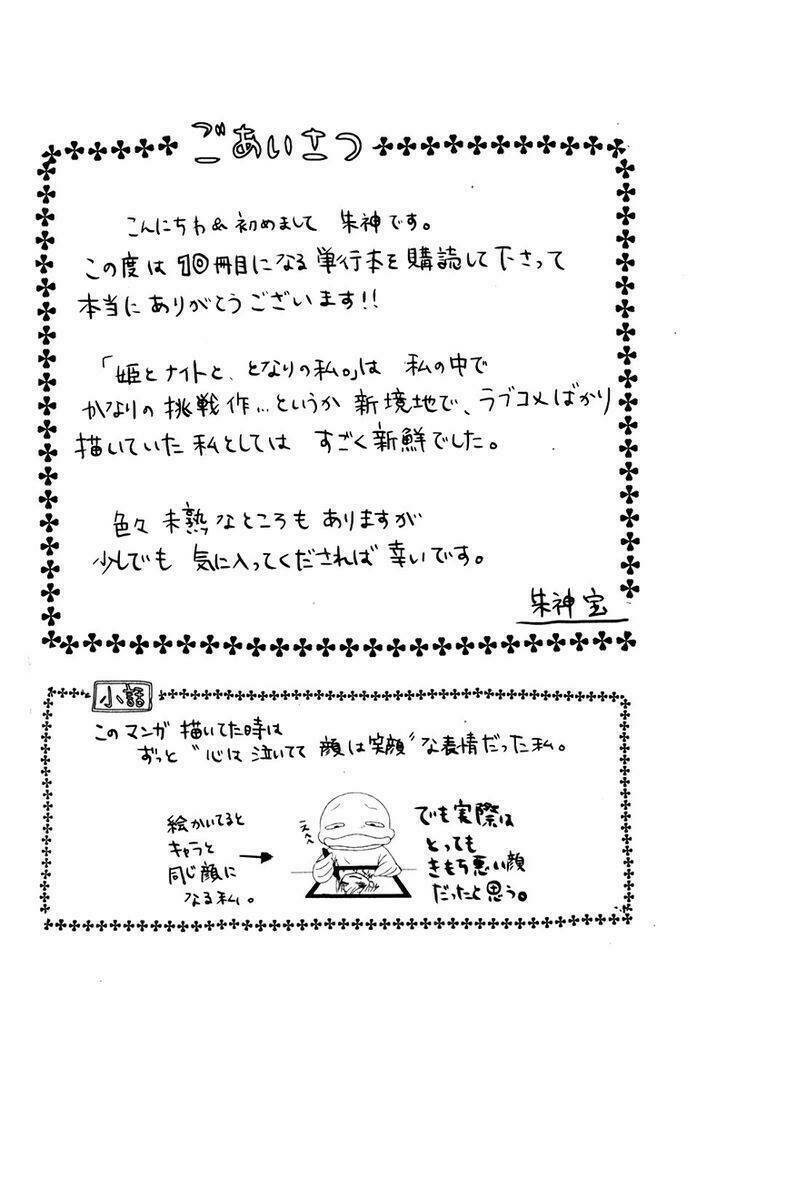 ごあいさつ
こんにちわ&初めまして 朱神です。
この度は10冊目になる単行本を購読して下さって
本当にありがとうございます!!
「姫とナイトと、となりの私。」は 私の中で
かなりの挑戦作…というか 新境地で、ラブコメばかり
描いていた私としては すごく新鮮でした。
色々 未熟なところも ありますが
少しでも 気に入ってくだされば 幸いです。
朱神 宝
小話
このマンガ 描いてた時は
ずっと“心は 泣いてて 顔は笑顔”な表情だった私。
絵かいてると
キャラと
同じ顔に
なる私。
えへへ
でも実際は
とっても
きもち悪い顔
だったと思う。